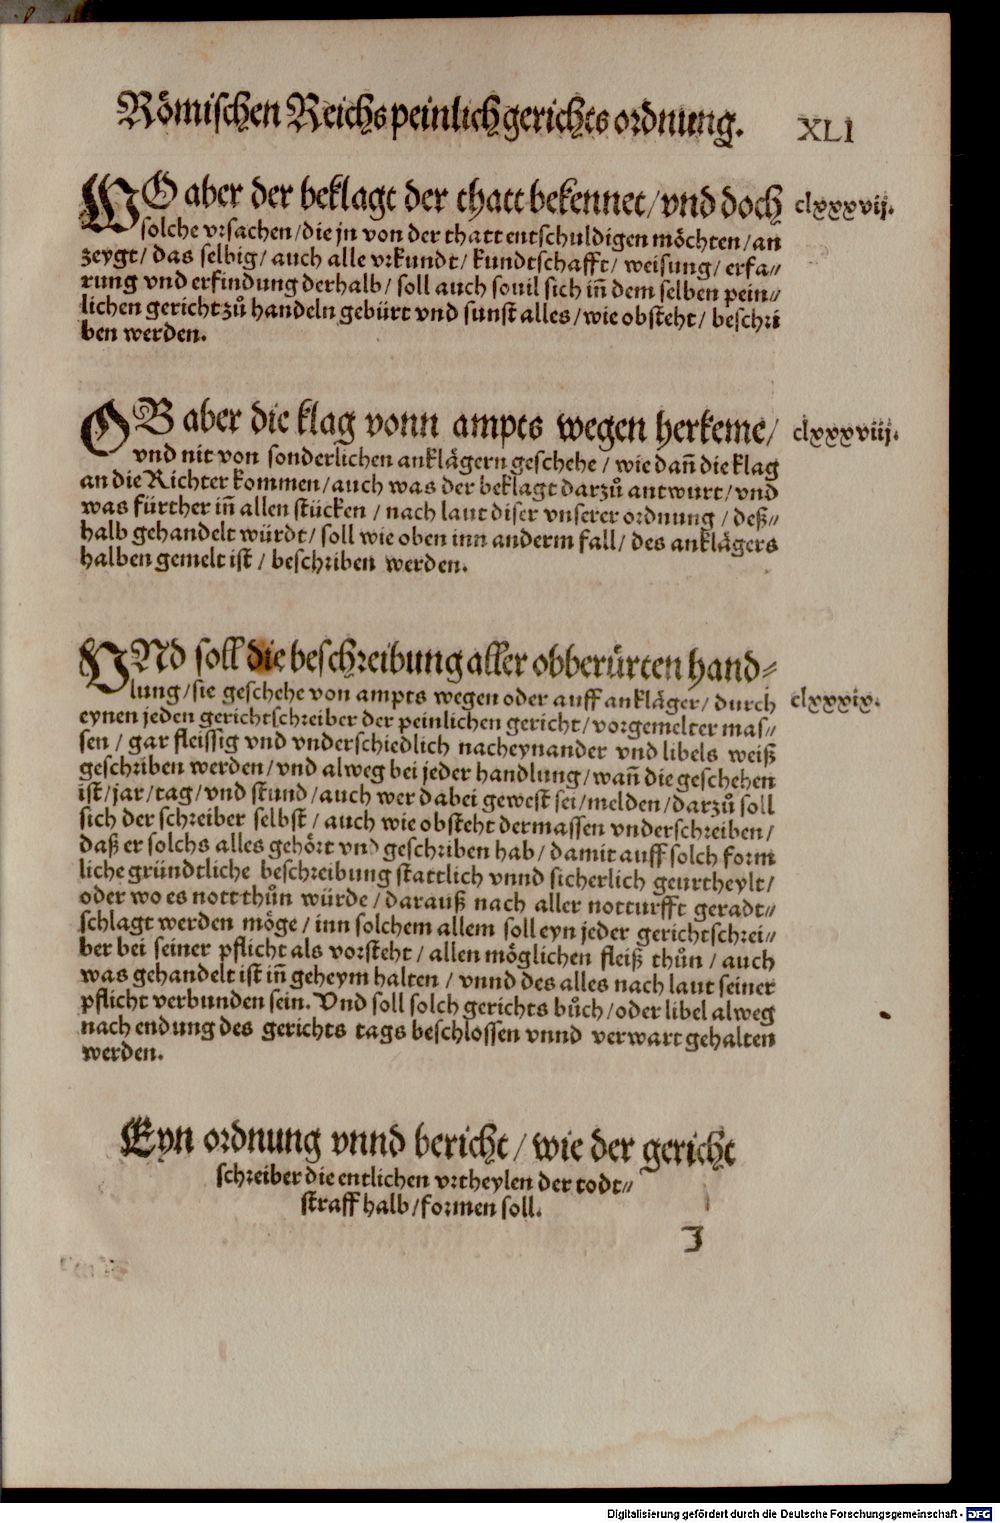 Römischen Reichs peinlich gerichts ordnung. XLI
WO aber der beklagt der thatt bekennet/ vnd doch clxxxvij.
solche vrsachen/ die jn von der thatt entschuldigen möchten/ an
zeygt/ das selbig/ auch alle vrkundt/ kundtschafft/ weisung/ erfa⸗
rung vnd erfindung derhalb/ soll auch souil sich iñ dem selben pein⸗
lichen gericht zů handeln gebürt vnd sunst alles/ wie obsteht/ beschri
ben werden.
OB aber die klag vonn ampts wegen herkeme/ clxxxviij.
vnd nit von sonderlichen anklägern geschehe/ wie dañ die klag
an die Richter kommen/ auch was der beklagt darzů antwurt/ vnd
was fürther iñ allen stücken/ nach laut diser vnserer ordnung/ deß⸗
halb gehandelt würdt/ soll wie oben inn anderm fall/ des anklägers
halben gemelt ist/ beschriben werden.
VNd soll die beschreibung aller obberürten hand⸗
lung/ sie geschehe von ampts wegen oder auff ankläger/ durch clxxxix.
eynen jeden gerichtschreiber der peinlichen gericht/ vorgemelter mas⸗
sen/ gar fleissig vnd vnderschiedlich nacheynander vnd libels weiß
geschriben werden/ vnd alweg bei jeder handlung/ wañ die geschehen
ist/ jar/ tag/ vnd stund/ auch wer dabei gewest sei/ melden/ darzů soll
sich der schreiber selbst/ auch wie obsteht dermassen vnderschreiben/
daß er solchs alles gehört vnd geschriben hab/ damit auff solch form
liche gründtliche beschreibung stattlich vnnd sicherlich geurtheylt/
oder wo es nott thůn würde/ darauß nach aller notturfft geradt⸗
schlagt werden möge/ inn solchem allem soll eyn jeder gerichtschrei⸗
ber bei seiner pflicht als vorsteht/ allen möglichen fleiß thůn/ auch
was gehandelt ist iñ geheym halten/ vnnd des alles nach laut seiner
pflicht verbunden sein. Vnd soll solch gerichts bůch/ oder libel alweg
nach endung des gerichts tags beschlossen vnnd verwart gehalten
werden.
Eyn ordnung vnnd bericht/ wie der gericht
schreiber die entlichen vrtheylen der todt⸗
straff halb/ formen soll.
J
Digitalisierung gefördert durch die Deutsche Forschungsgemeinschaft - DFG